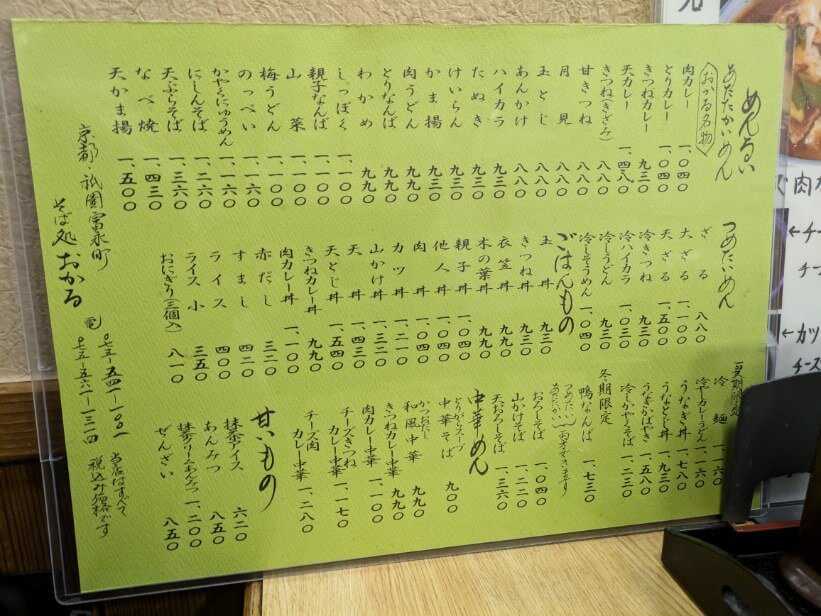 めん類
あたたかいめん
おかる名物
肉カレー 一、〇四〇
とりカレー 一、〇四〇
きつねカレー 九三〇
天カレー 一、四八〇
きつね(きざみ) 八八〇
甘きつね 八八〇
月見 八八〇
玉とじ 八八〇
あんかけ 八八〇
ハイカラ 九三〇
たぬき 九三〇
けいらん 九三〇
かま揚 九三〇
肉うどん 九九〇
とりなんば 九九〇
わかめ 九九〇
しっぽく 一、一〇〇
親子なんば 一、一〇〇
山菜 一、一〇〇
梅うどん 一、一〇〇
のっぺい 一、一六〇
かやくにゅうめん 一、一六〇
にしんそば 一、二六〇
天ぷらそば 一、三六〇
なべ焼 一、四三〇
天かま揚 一、五〇〇
つめたいめん
ざる 八八〇
大ざる 一、一〇〇
天ざる 一、五〇〇
冷きつね 九三〇
冷ハイカラ 一、〇三〇
冷しうどん 九三〇
冷しそうめん 一、〇四〇
ごはんもの
玉丼 九三〇
きつね丼 九三〇
衣笠丼 九九〇
木の葉丼 九九〇
親子丼 一、〇四〇
他人丼 一、〇四〇
肉丼 一、〇四〇
カツ丼 一、二一〇
山かけ丼 一、二一〇
天丼 一、四三〇
天とじ丼 一、五四〇
きつねカレー丼 九九〇
肉カレー丼 一、一〇〇
赤だし 三二〇
すまし 四二〇
ライス 四〇〇
ライス小 三五〇
おにぎり(三個入) 八一〇
夏期限定
冷麺 一、一六〇
冷やしカレーうどん 一、一六〇
うなぎ丼 一、七八〇
うなとじ丼 一、九三〇
うなぎかばやき 一、五八〇
冷しかやくそば 一、二三〇
冬期限定
鴨なんば 一、七三〇
つめたい
あたたかい
両方できます
おろしそば 一、〇四〇
山かけそば 一、二二〇
天おろしそば 一、三六〇
中華めん
とりがらスープ
中華そば 九〇〇
かつおだし
和風中華 九九〇
きつねカレー中華 九九〇
肉カレー中華 一、一〇〇
チーズきつねカレー中華 一、一七〇
チーズ肉カレー中華 一、二八〇
甘いもの
抹茶アイス 六二〇
あんみつ 八五〇
抹茶クリームあんみつ 一、二〇〇
ぜんざい 八五〇
当店はすべて
税込み価格です
京都・祇園富永町
そば処 おかる
電 〇七五-五四一-一〇〇一
〇七五-五六一-一三二四